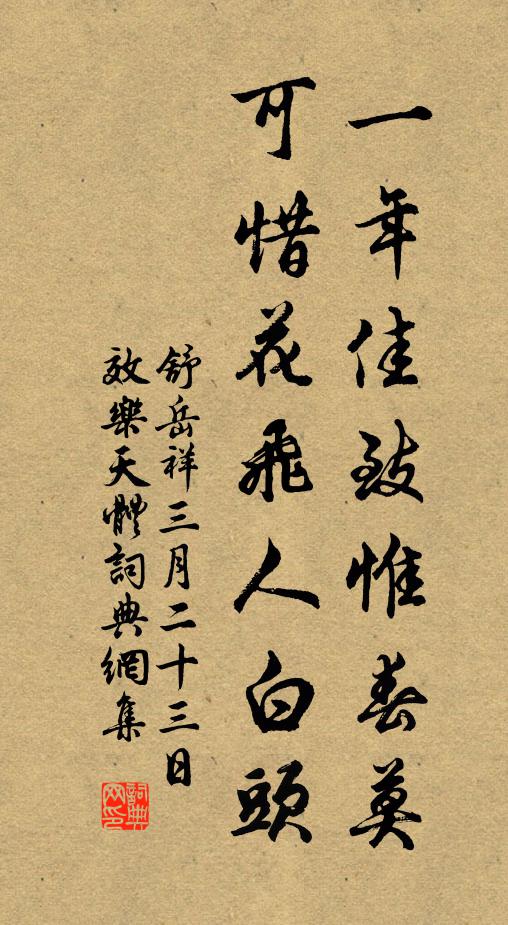 一年佳致惟春莫
可惜花飛人白頭
舒岳祥三月二十三日
效樂天體詞典網集
詞典網印